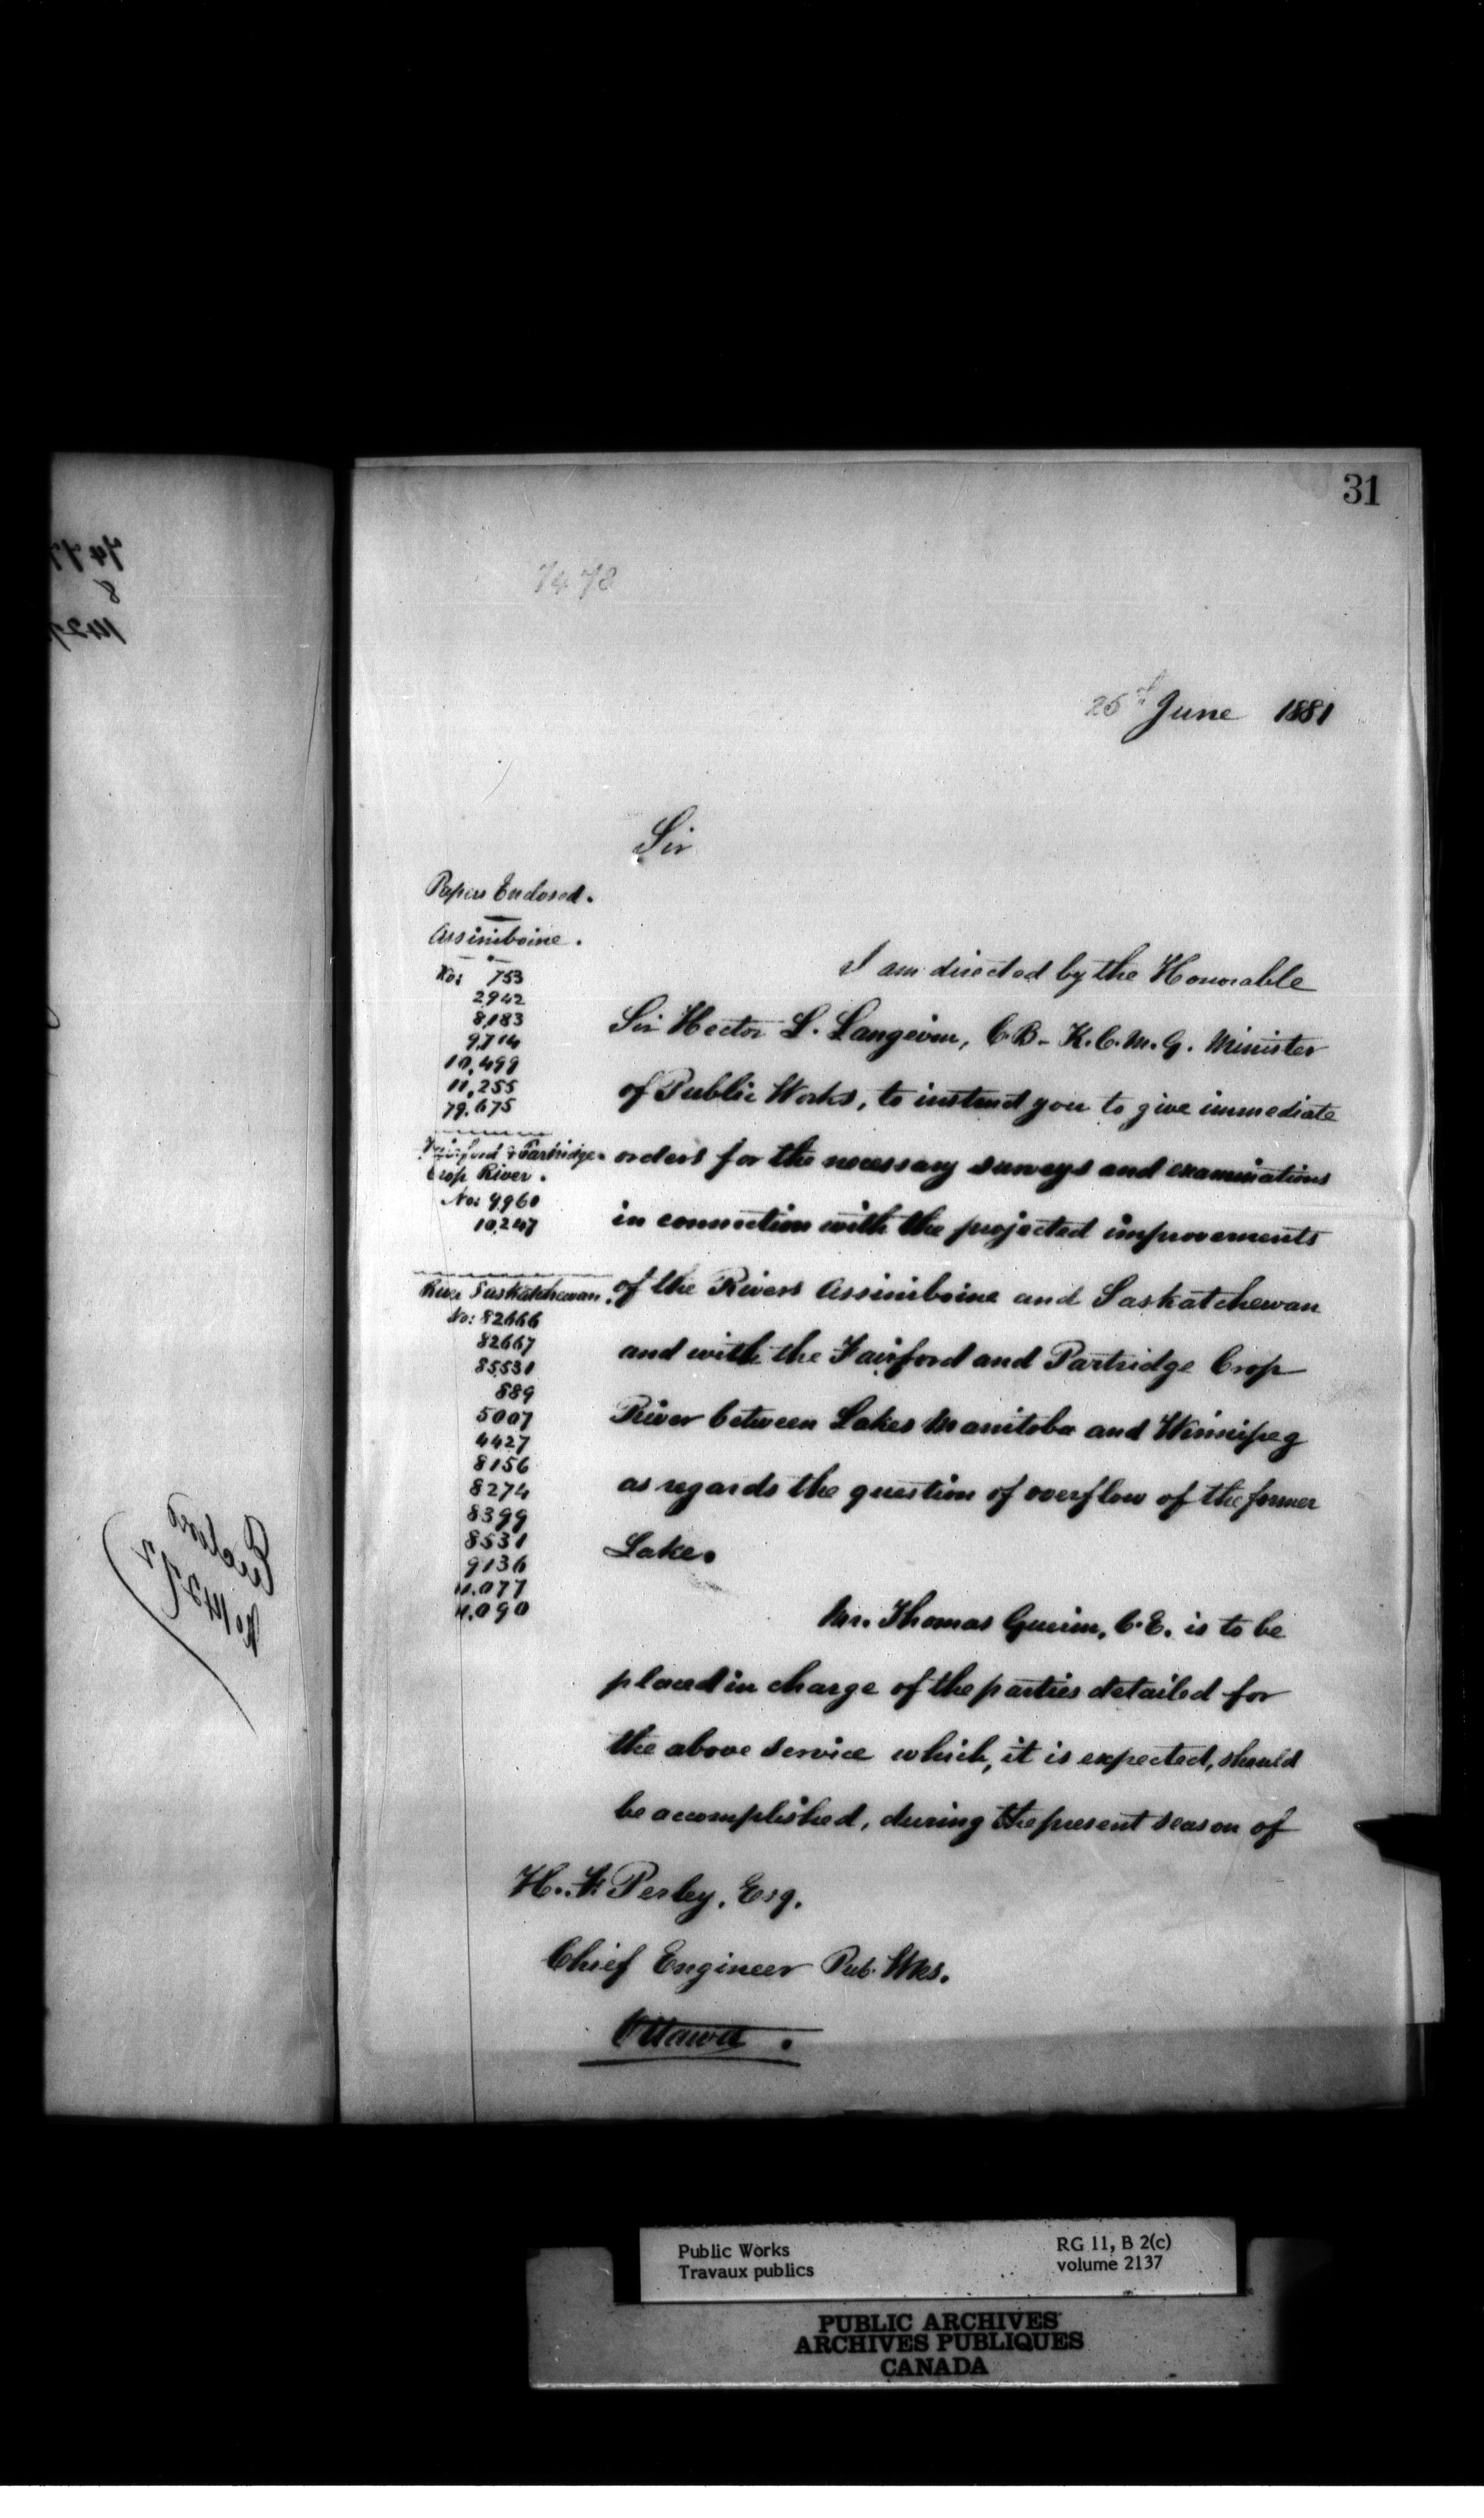 31
7478
June 1881
Sir
Papers Enclosed.
Assiniboine.
No: 753
2942
8,183
9,714
10,499
11,255
79,675
Fairford & Partridge
Crop River.
No: 9960
10,247
River Saskatchewan.
No: 82666
82667
85531
889
5007
4427
8156
8274
8399
8531
9136
11.077
11.090
I am directed by the Honorable
Sir Hector L. Langevin, C.B- K.C.M.G. Minister
of Public Works, to instruct you to give immediate
orders for the necessary surveys and examinations
in connection with the projected improvements
of the Rivers Assiniboine and Saskatchewan
and with the Fairford and Partridge Crop
River between Lakes Manitoba and Winnipeg
as regards the question of overflow of the former
Lake.
Mr. Thomas Guerin, C.E. is to be
placed in charge of the parties detailed for
the above service which, it is expected, should
be accomplished, during the present season of
H. F. Perley, Esq.
Chief Engineer Pub. Wks.
Ottawa.
Public Works
Travaux publics
RG 11, B 2(c)
volume 2137
PUBLIC ARCHIVES
ARCHIVES PUBLIQUES
CANADA